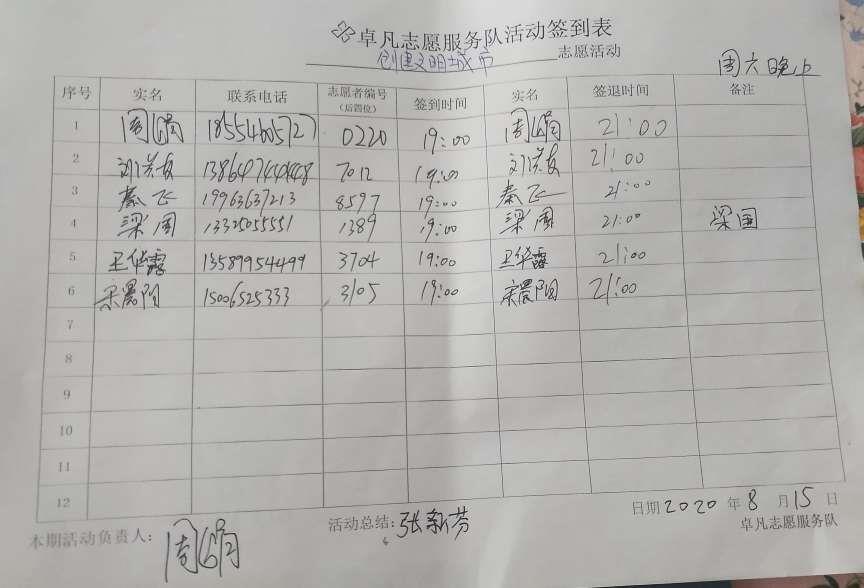 卓凡志愿服务队活动签到表
创建文明城市 志愿活动
周六晚上
序号 实名 联系电话 志愿者编号（后四位） 签到时间 实名 签退时间 备注
1 周 18554605727 0220 19:00 周 21:00
2 刘洪友 13864744448 7012 19:00 刘洪友 21:00
3 秦飞 19963637213 8597 19:00 秦飞 21:00
4 梁国 13325055551 1389 19:00 梁国 21:00 梁国
5 王华露 13589954499 3704 19:00 王华露 21:00
6 宋晨阳 15006525333 3105 19:00 宋晨阳 21:00
7
8
9
10
11
12
日期 2020 年 8 月 15 日
本期活动负责人： 周
活动总结： 张新芬
卓凡志愿服务队